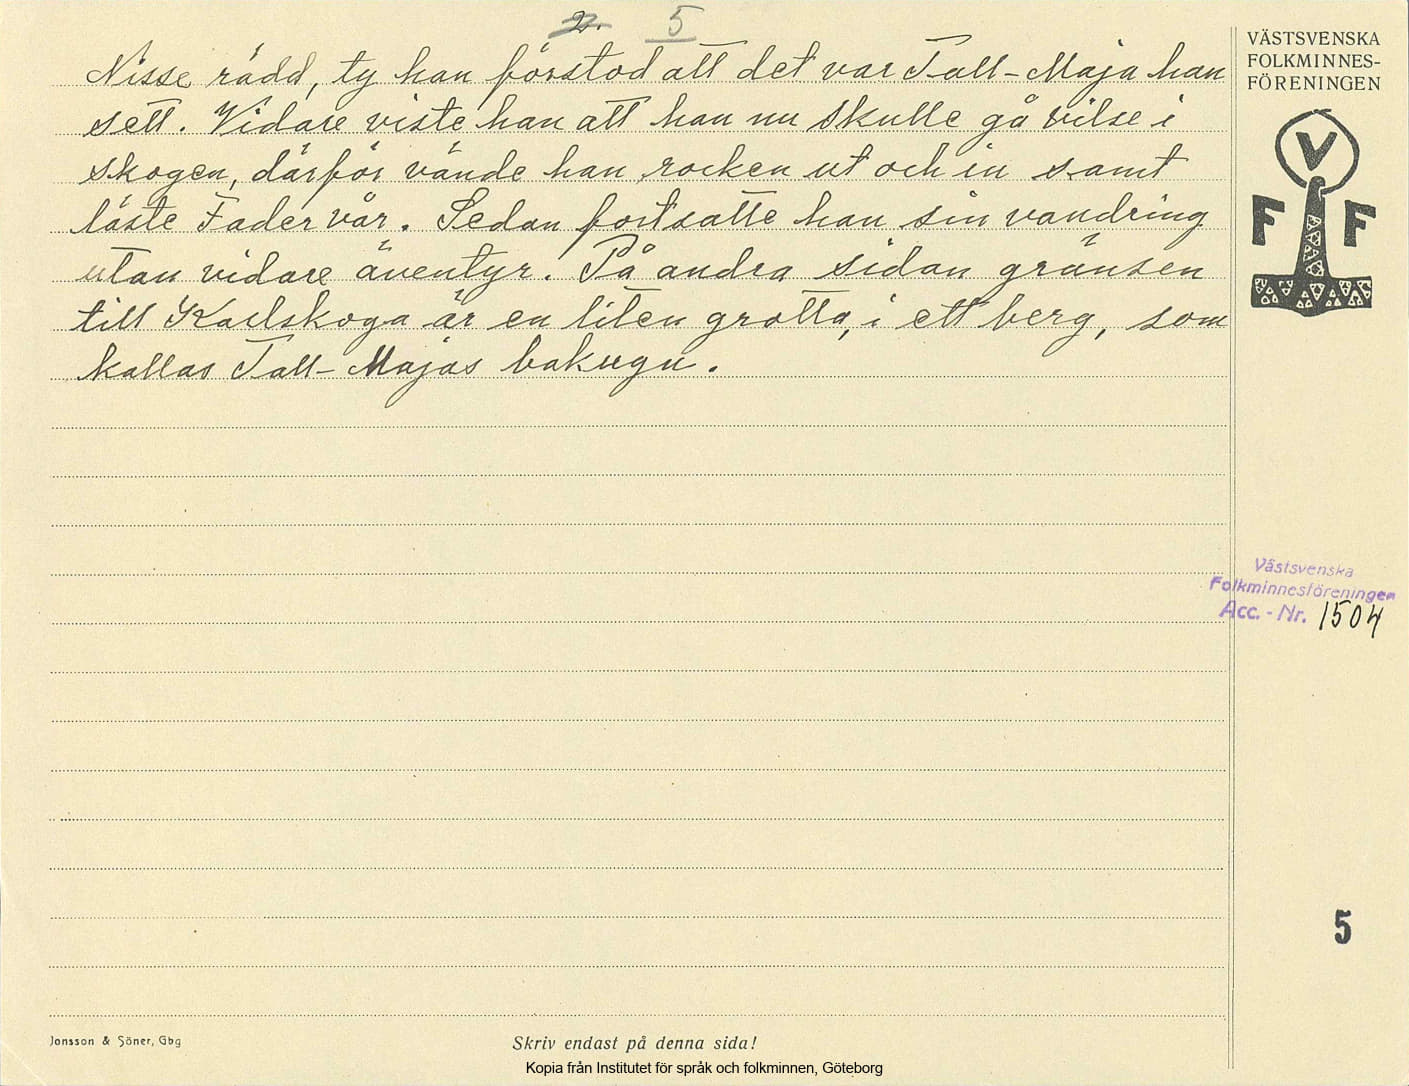 2. 5
Nisse rädd, ty han förstod att det var Tall-Maja han
sett. Vidare viste han att han nu skulle gå vilse i
skogen, därför vände han rocken ut och in samt
läste Fader vår. Sedan fortsatte han sin vandring
utan vidare äventyr. På andra sidan gränsen
till Karlskoga är en liten grotta, i ett berg, som
kallas Tall-Majas bakugn.
VÄSTSVENSKA
FOLKMINNES-
FÖRENINGEN
V
F F
Västsvenska
Folkminnesföreningen
Acc.-Nr. 1504
5
Jonsson & Söner, Gbg
Skriv endast på denna sida!
Kopia från Institutet för språk och folkminnen, Göteborg